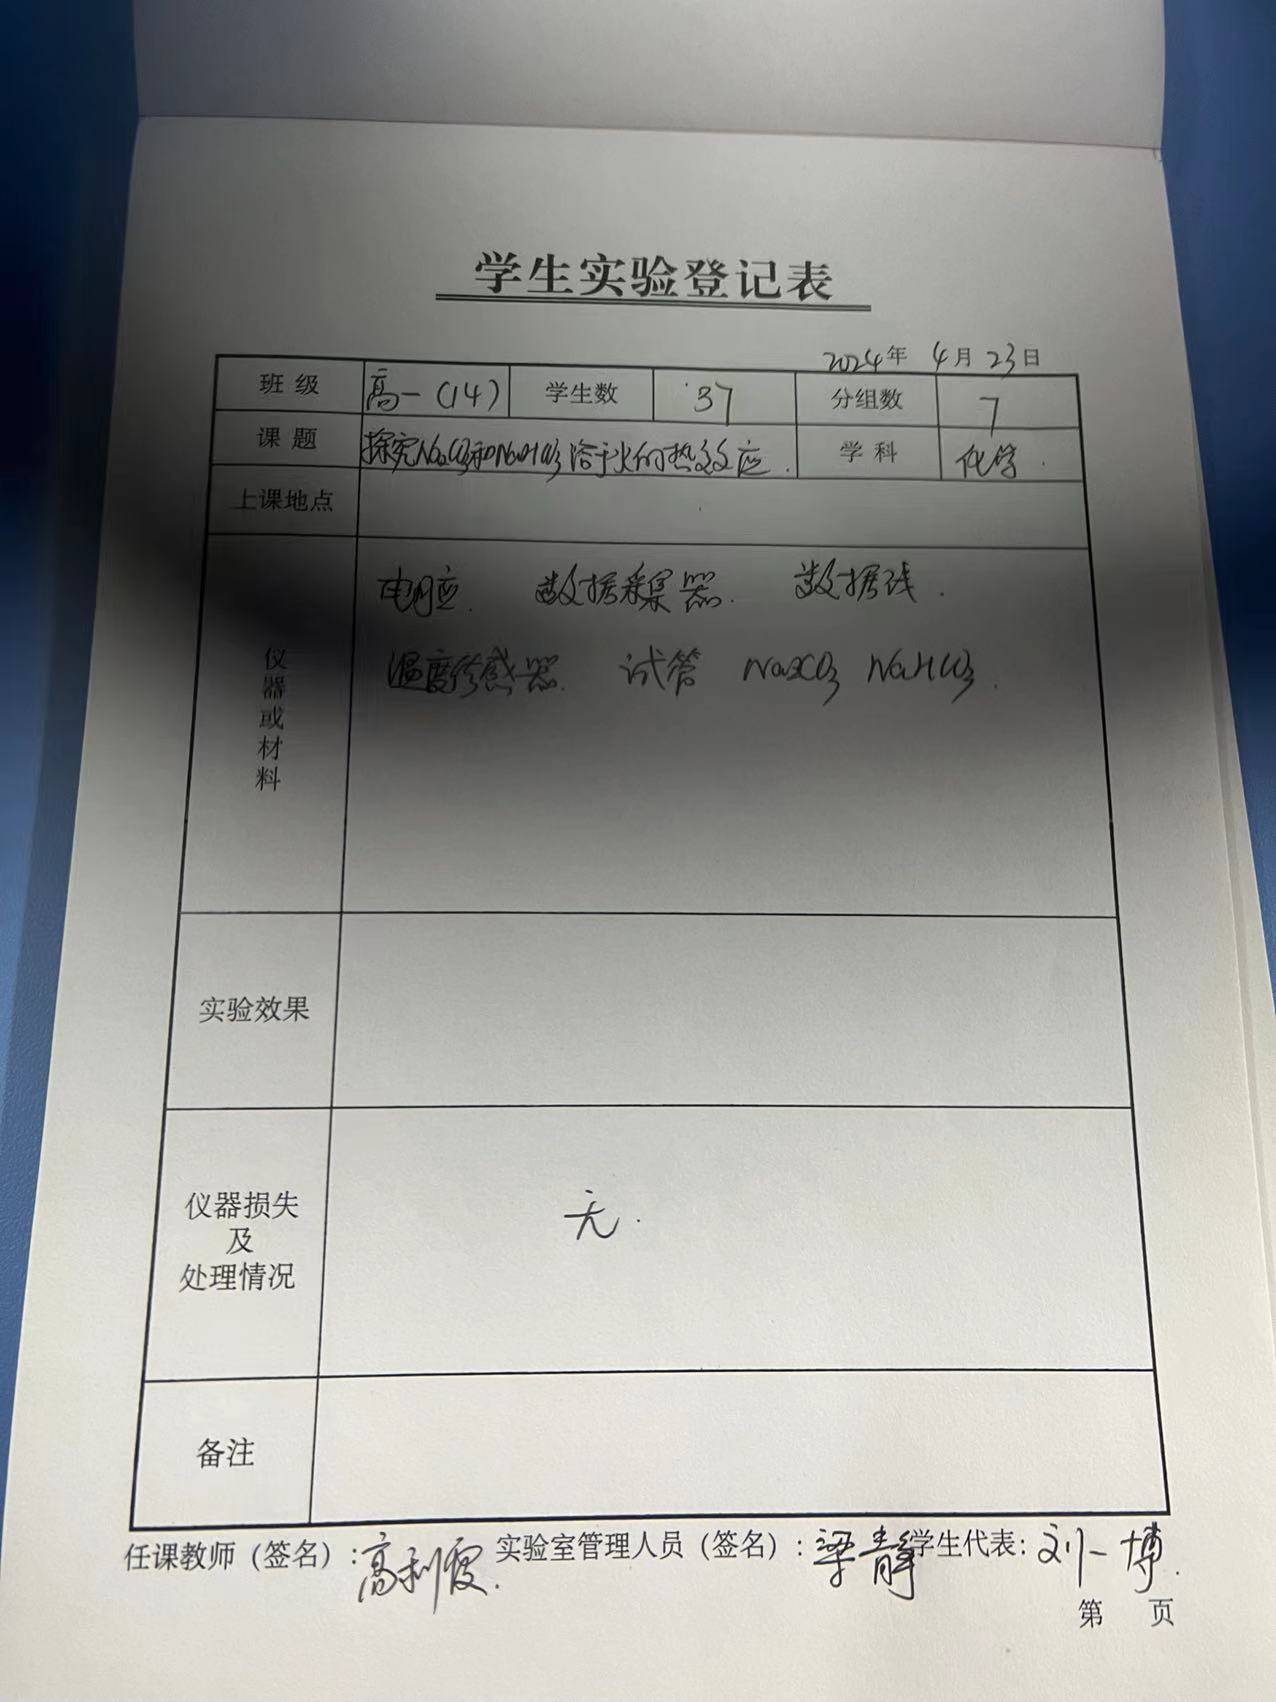 学生实验登记表
2024年 4月23日
班级 高一(14) 学生数 37 分组数 7
课题 探究Na2CO3和NaHCO3溶于水的热效应. 学科 化学.
上课地点
仪器或材料
电脑. 数据采集器. 数据线.
温度传感器. 试管 Na2CO3 NaHCO3.
实验效果
仪器损失
及
处理情况
无.
备注
任课教师（签名）:高利霞. 实验室管理人员（签名）:梁青静 学生代表:刘一博.
第 页